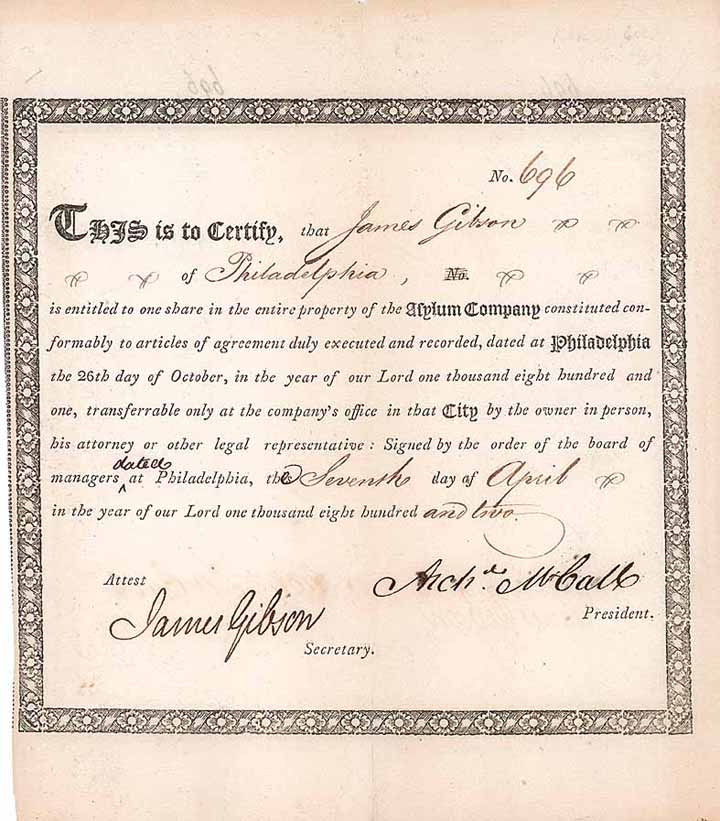 No. 696
THIS is to Certify, that James Gibson
of Philadelphia, No.
is entitled to one share in the entire property of the Asylum Company constituted con-
formably to articles of agreement duly executed and recorded, dated at Philadelphia
the 26th day of October, in the year of our Lord one thousand eight hundred and
one, transferrable only at the company's office in that City by the owner in person,
his attorney or other legal representative: Signed by the order of the board of
dated
managers ‸ at Philadelphia, the Seventh day of April
in the year of our Lord one thousand eight hundred and two.
Attest
Archd. McCall
James Gibson
President.
Secretary.